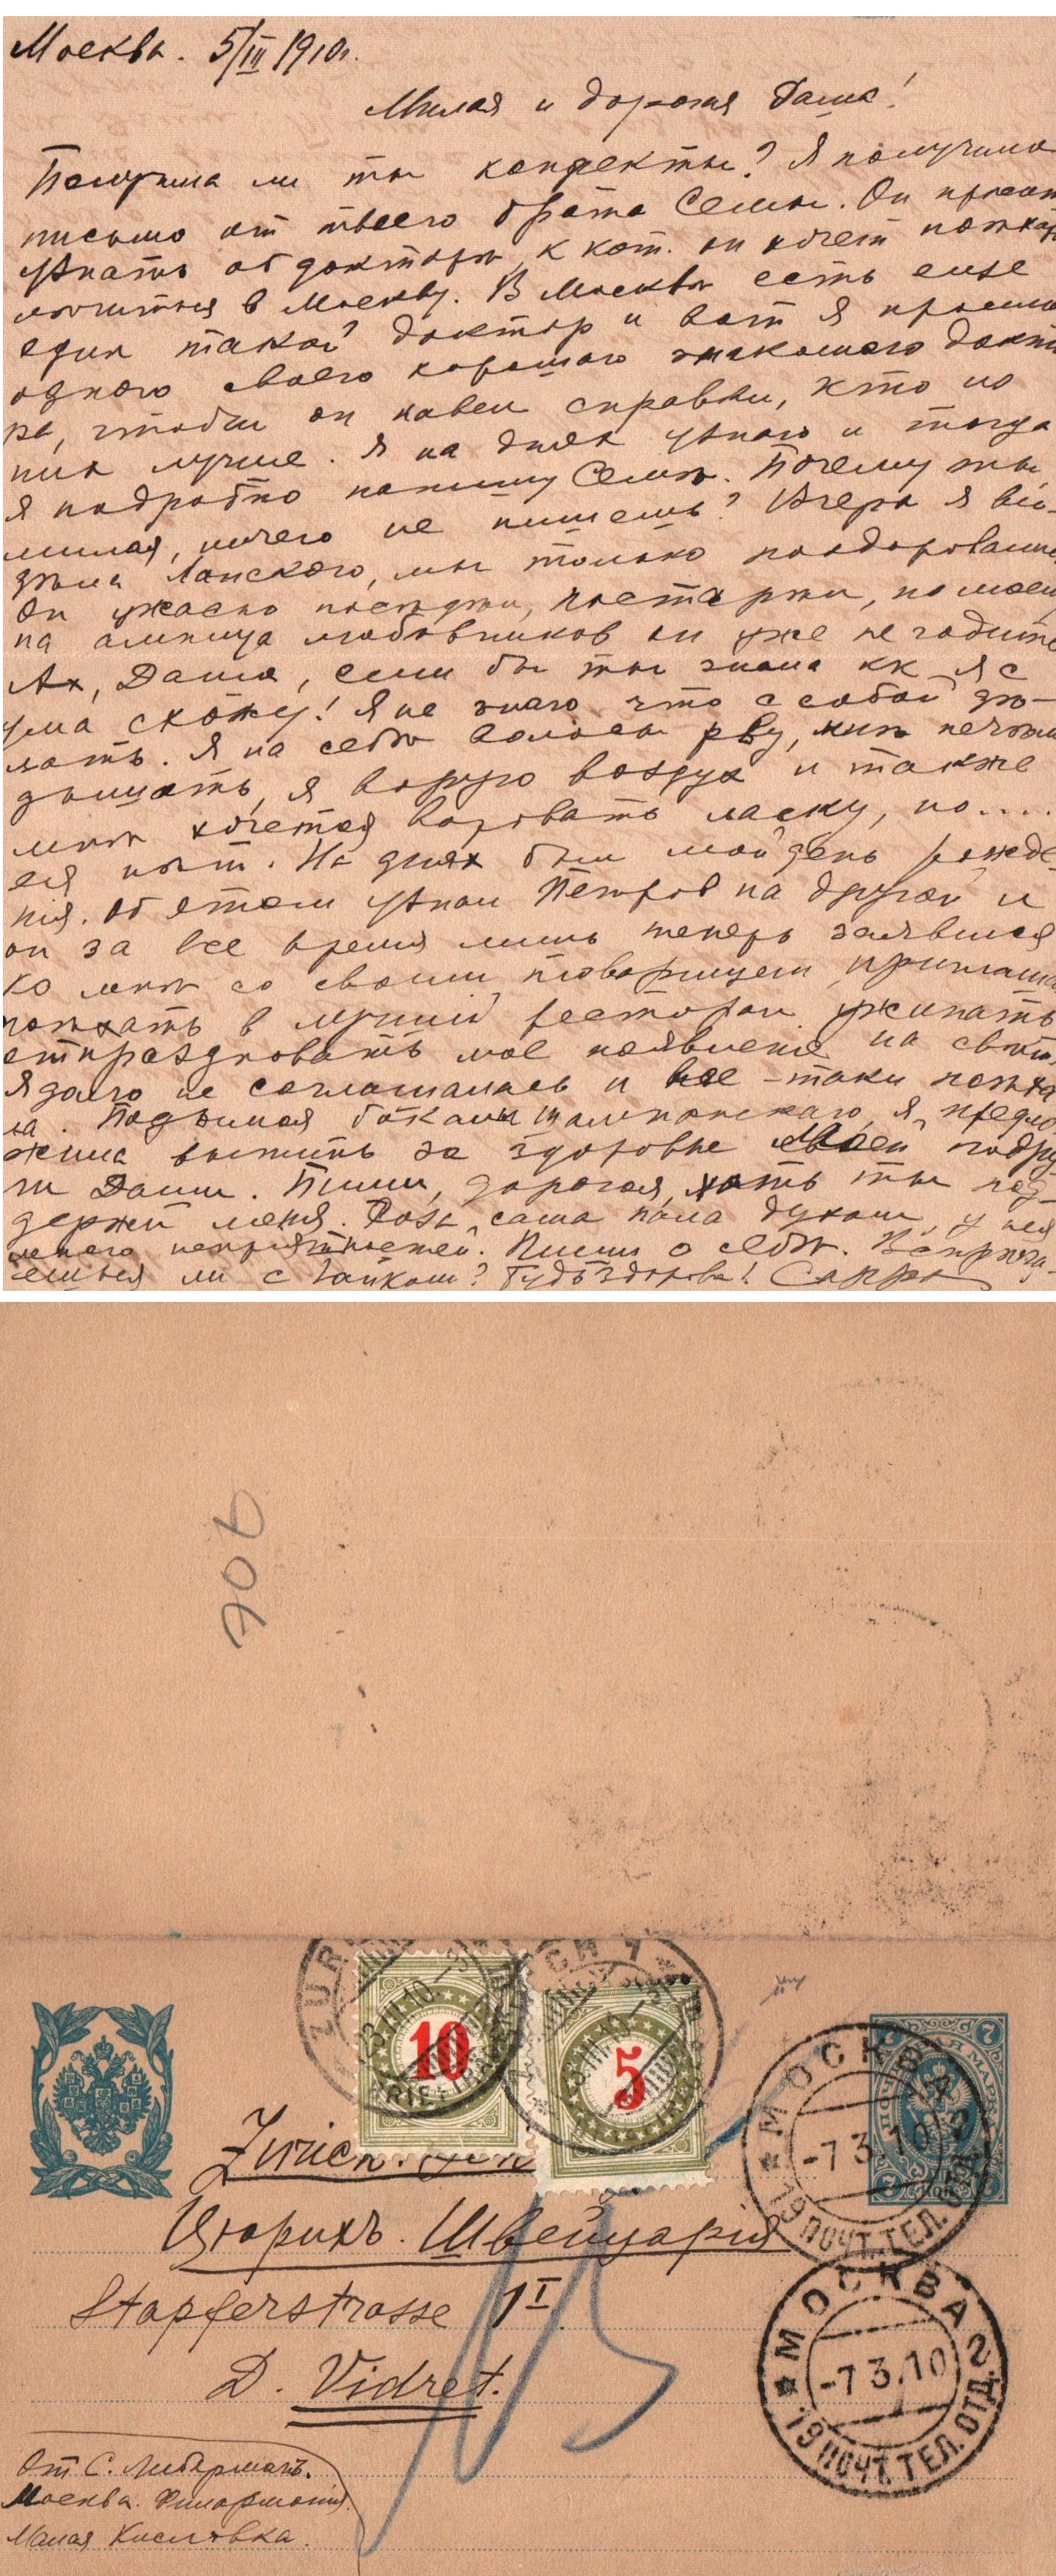 Москва. 5/III 1910г.
Милая и дорогая Даша!
Получила ли ты конфекты? Я получила
письмо от твоего брата Семы. Он просит
узнать об докторѣ, к кот. он хочет поѣхать
лѣчиться в Москву. В Москвѣ есть еще
один такой доктор и вот я просила
одного своего хорошого знакомого докто
ра, чтобы он навел справки, кто из
них лучше. Я на днях узнаю и тогда
я подробно напишу Семѣ. Почему ты
милая, ничего не пишешь? Вчера я ви-
дѣла Ланского, мы только поздоровались,
он ужасно посѣдѣл, постарѣл, по моему
на амплуа любовников он уже не годится
Ах, Даша, если бы ты знала кк я с
ума схожу! Я не знаю что с собой дѣ-
лать. Я на себѣ волосы рву, мнѣ нечѣм
дышать, я ворую воздух и также
мнѣ хочется воровать ласку, но....
ея нѣт. На днях был мой день рожде-
нія. Об этом узнал Петров на другой и
он за все время лишь теперь заявился
ко мнѣ со своим товарищем, приглаша
поѣхать в лучшій ресторан ужинать
отпраздновать мое появленіе на свѣт.
Я долго не соглашалась и все-таки поѣха
ла. Подымая бокалы шампанскаго, я предло
жила выпить за здоровье моей подру
ги Даши. Пиши, дорогая, хоть ты под-
держи меня. Роза сама пала духом, у нея
много непріятностей. Пиши о себѣ. Встрѣча-
ешься ли с Чайком? Будь здорова! Сарра
706
ZÜRICH
10
5
МОСКВА
-7 3.10
19 ПОЧТ. ТЕЛ. ОТД.
7
Zürich.
Цюрихъ. Швейцарія
Stapferstrasse 1 I
D. Vidret.
15
МОСКВА 2
-7 3.10
19 ПОЧТ. ТЕЛ. ОТД.
От С. Либерманъ.
Москва. Филармонія.
Малая Кисловка.